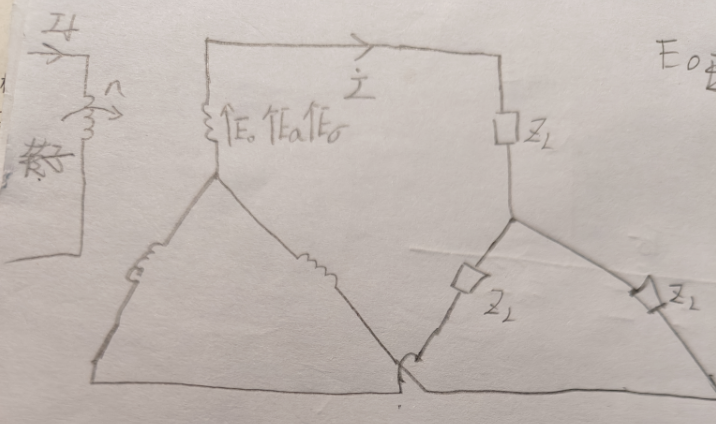 If
n
E₀ Ea Eσ
İ
Z_L
Z_L
Z_L
E₀